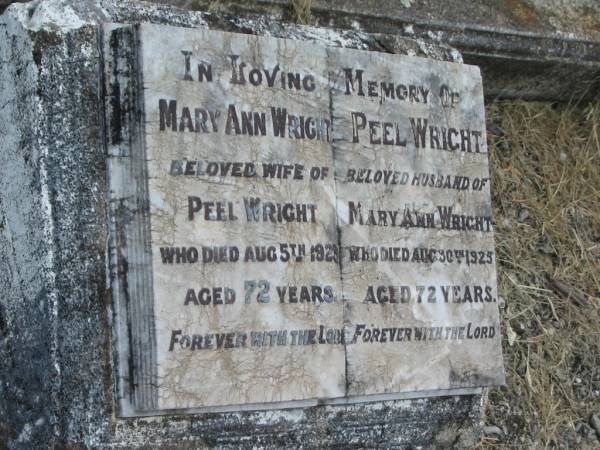 IN LOVING MEMORY OF
MARY ANN WRIGHT
BELOVED WIFE OF
PEEL WRIGHT
WHO DIED AUG 5TH
AGED 72 YEARS.
FOREVER WITH THE LORD
PEEL WRIGHT
BELOVED HUSBAND OF
MARY ANN WRIGHT
WHO DIED AUG 30TH 1925
AGED 72 YEARS.
FOREVER WITH THE LORD